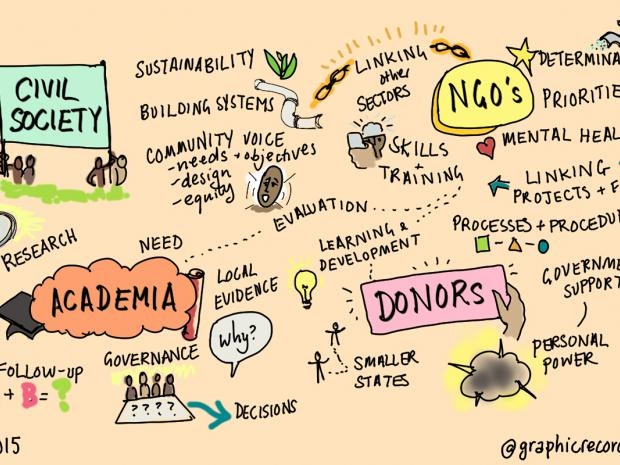 CIVIL
SOCIETY
SUSTAINABILITY
BUILDING SYSTEMS
COMMUNITY VOICE
- needs + objectives
- design
- equity
LINKING
other
SECTORS
SKILLS
+
TRAINING
NGO's
DETERMINA
PRIORITIE
MENTAL HEAL
LINKING
PROJECTS + F
PROCESSES + PROCEDU
GOVERNME
SUPPORT
PERSONAL
POWER
EVALUATION
RESEARCH
NEED
ACADEMIA
LOCAL
EVIDENCE
LEARNING &
DEVELOPMENT
DONORS
why?
SMALLER
STATES
GOVERNANCE
? ? ? ?
DECISIONS
FOLLOW-up
+ B = ?
2015
@graphicrecor